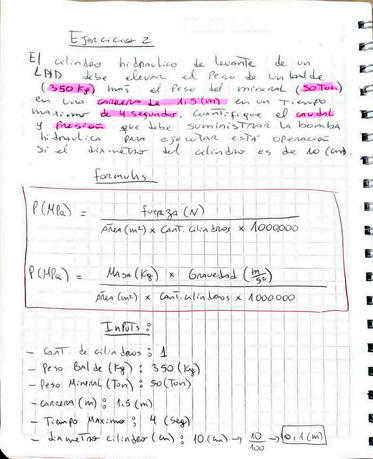 Ejercicio 2
El cilindro hidraulico de levante de un
LHD debe elevar el Peso de un balde
(350 Kg) mas el peso del mineral (50 Ton)
en una carrera de 1.5 (m) en un Tiempo
maximo de 4 segundos. Cuantifique el caudal
y presión que debe suministrar la bomba
hidraulica para ejecutar esta operación
Si el diametro del cilindro es de 10 (cm).
formulas
P (MPa) = fuerza (N)
Área (m²) x Cant. cilindros x 1000000
P (MPa) = Masa (Kg) x Gravedad (m/s²)
Área (m²) x Cant. cilindros x 1000000
Inputs :
- Cant. de cilindros : 1
- Peso Balde (Kg) : 350 (Kg)
- Peso Mineral (Ton) : 50 (Ton)
- Carrera (m) : 1.5 (m)
- Tiempo Maximo : 4 (seg)
- diametro cilindro (cm) : 10 (cm) → 10/100 → 0,1 (m)